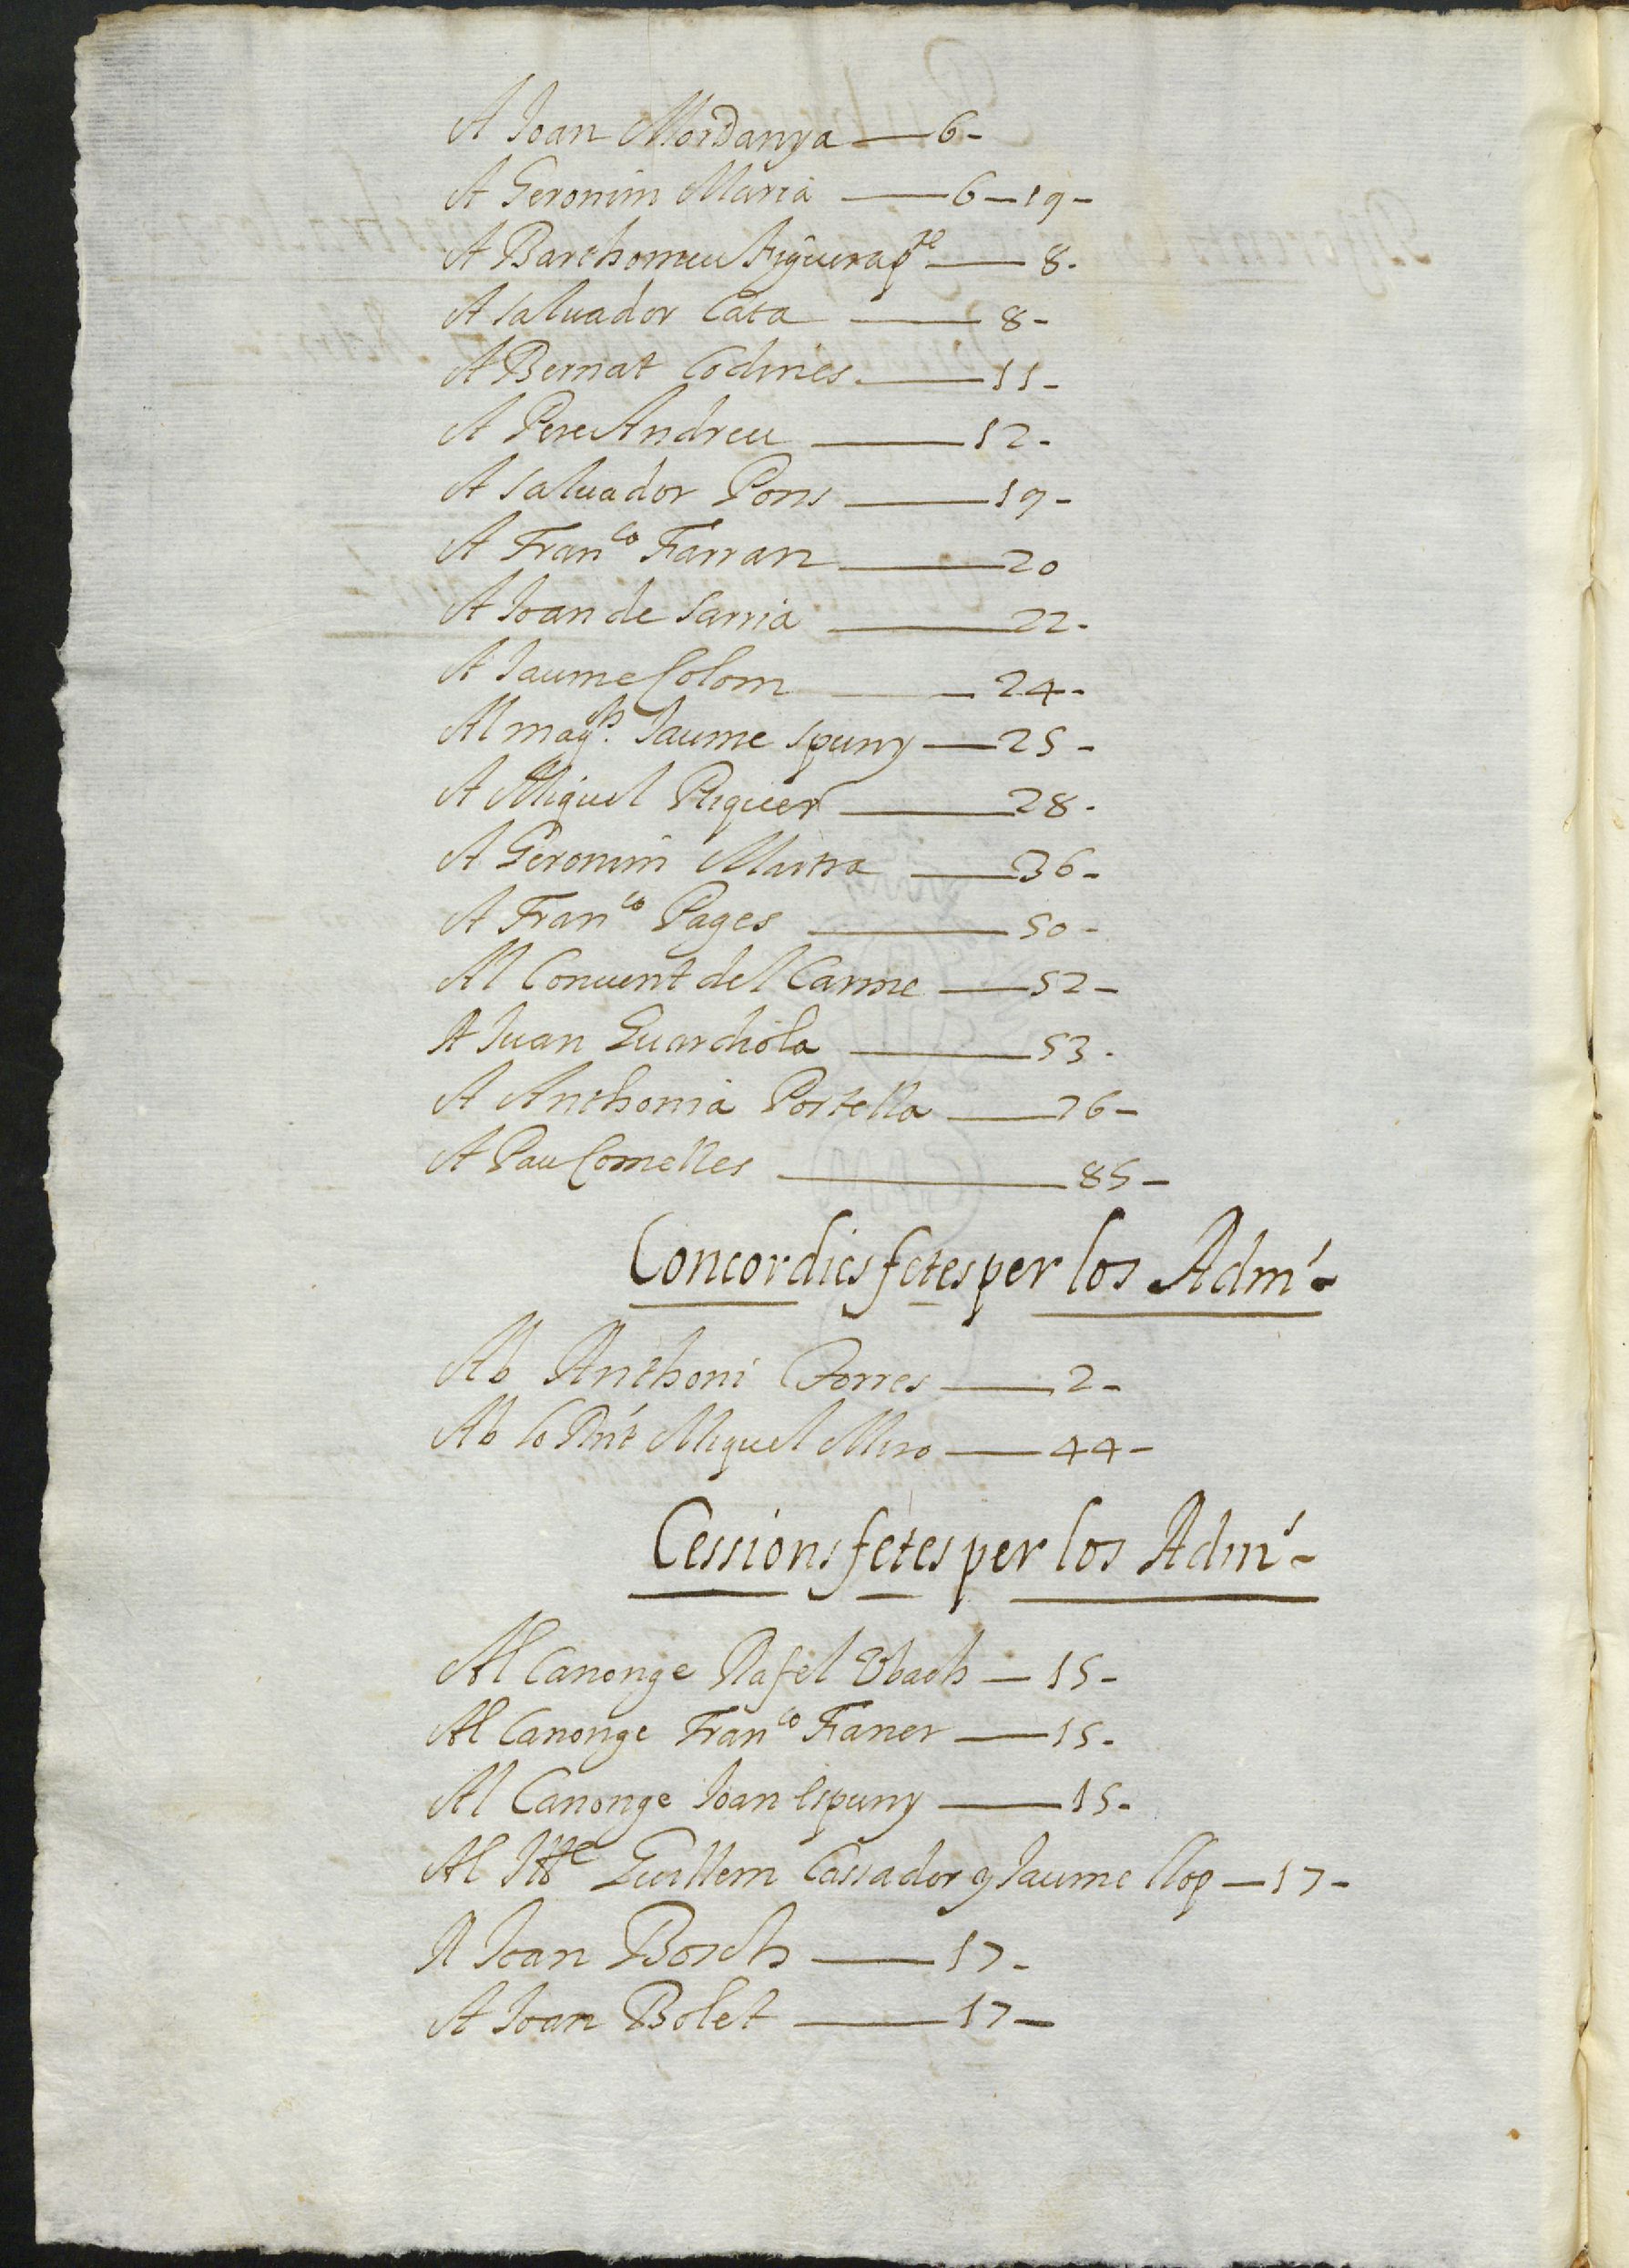 A Joan Mordanya — 6 -
A Geronim Maria — 6 — 19 -
A Barthomeu Figueras — 8 -
A saluador Cata — 8 -
A Bernat Codines — 11 -
A Pere Andreu — 12 -
A saluador Pons — 19 -
A Franco Farran — 20
A Joan de Sarria — 22 -
A Jaume Colom — 24 -
Al magch. Jaume spuny — 25 -
A Miquel Piquer — 28 -
A Geronim — 36 -
A Franco Pages — 50 -
Al Conuent del Carme — 52 -
A Juan Guardiola — 53 -
A Anthonia Portella — 76 -
A Pau Comelles — 85 -
Concordies fetes per los Adm's
Ab Anthoni Torres — 2 -
Ab lo Rnt Miquel Miro — 44 -
Cessions fetes per los Adm's
Al Canonge Rafel Vbach — 15 -
Al Canonge Franco Faner — 15 -
Al Canonge Joan Espuny — 15 -
Al Guillem Cassador y Jaume llop — 17 -
A Joan Bosch — 17 -
A Joan Bolet — 17 -